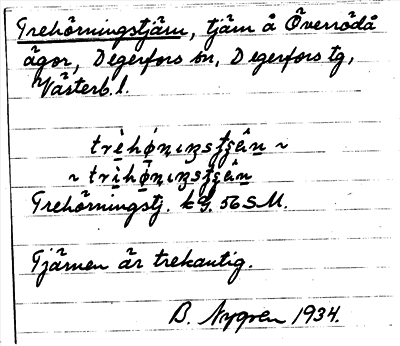 Trehörningstjärn, tjärn å Överrödå
ägor, Degerfors sn, Degerfors tg,
Västerb. l.
Trehörningstj. kg. 56 S.M.
Tjärnen är trekantig.
B. Nygren 1934.